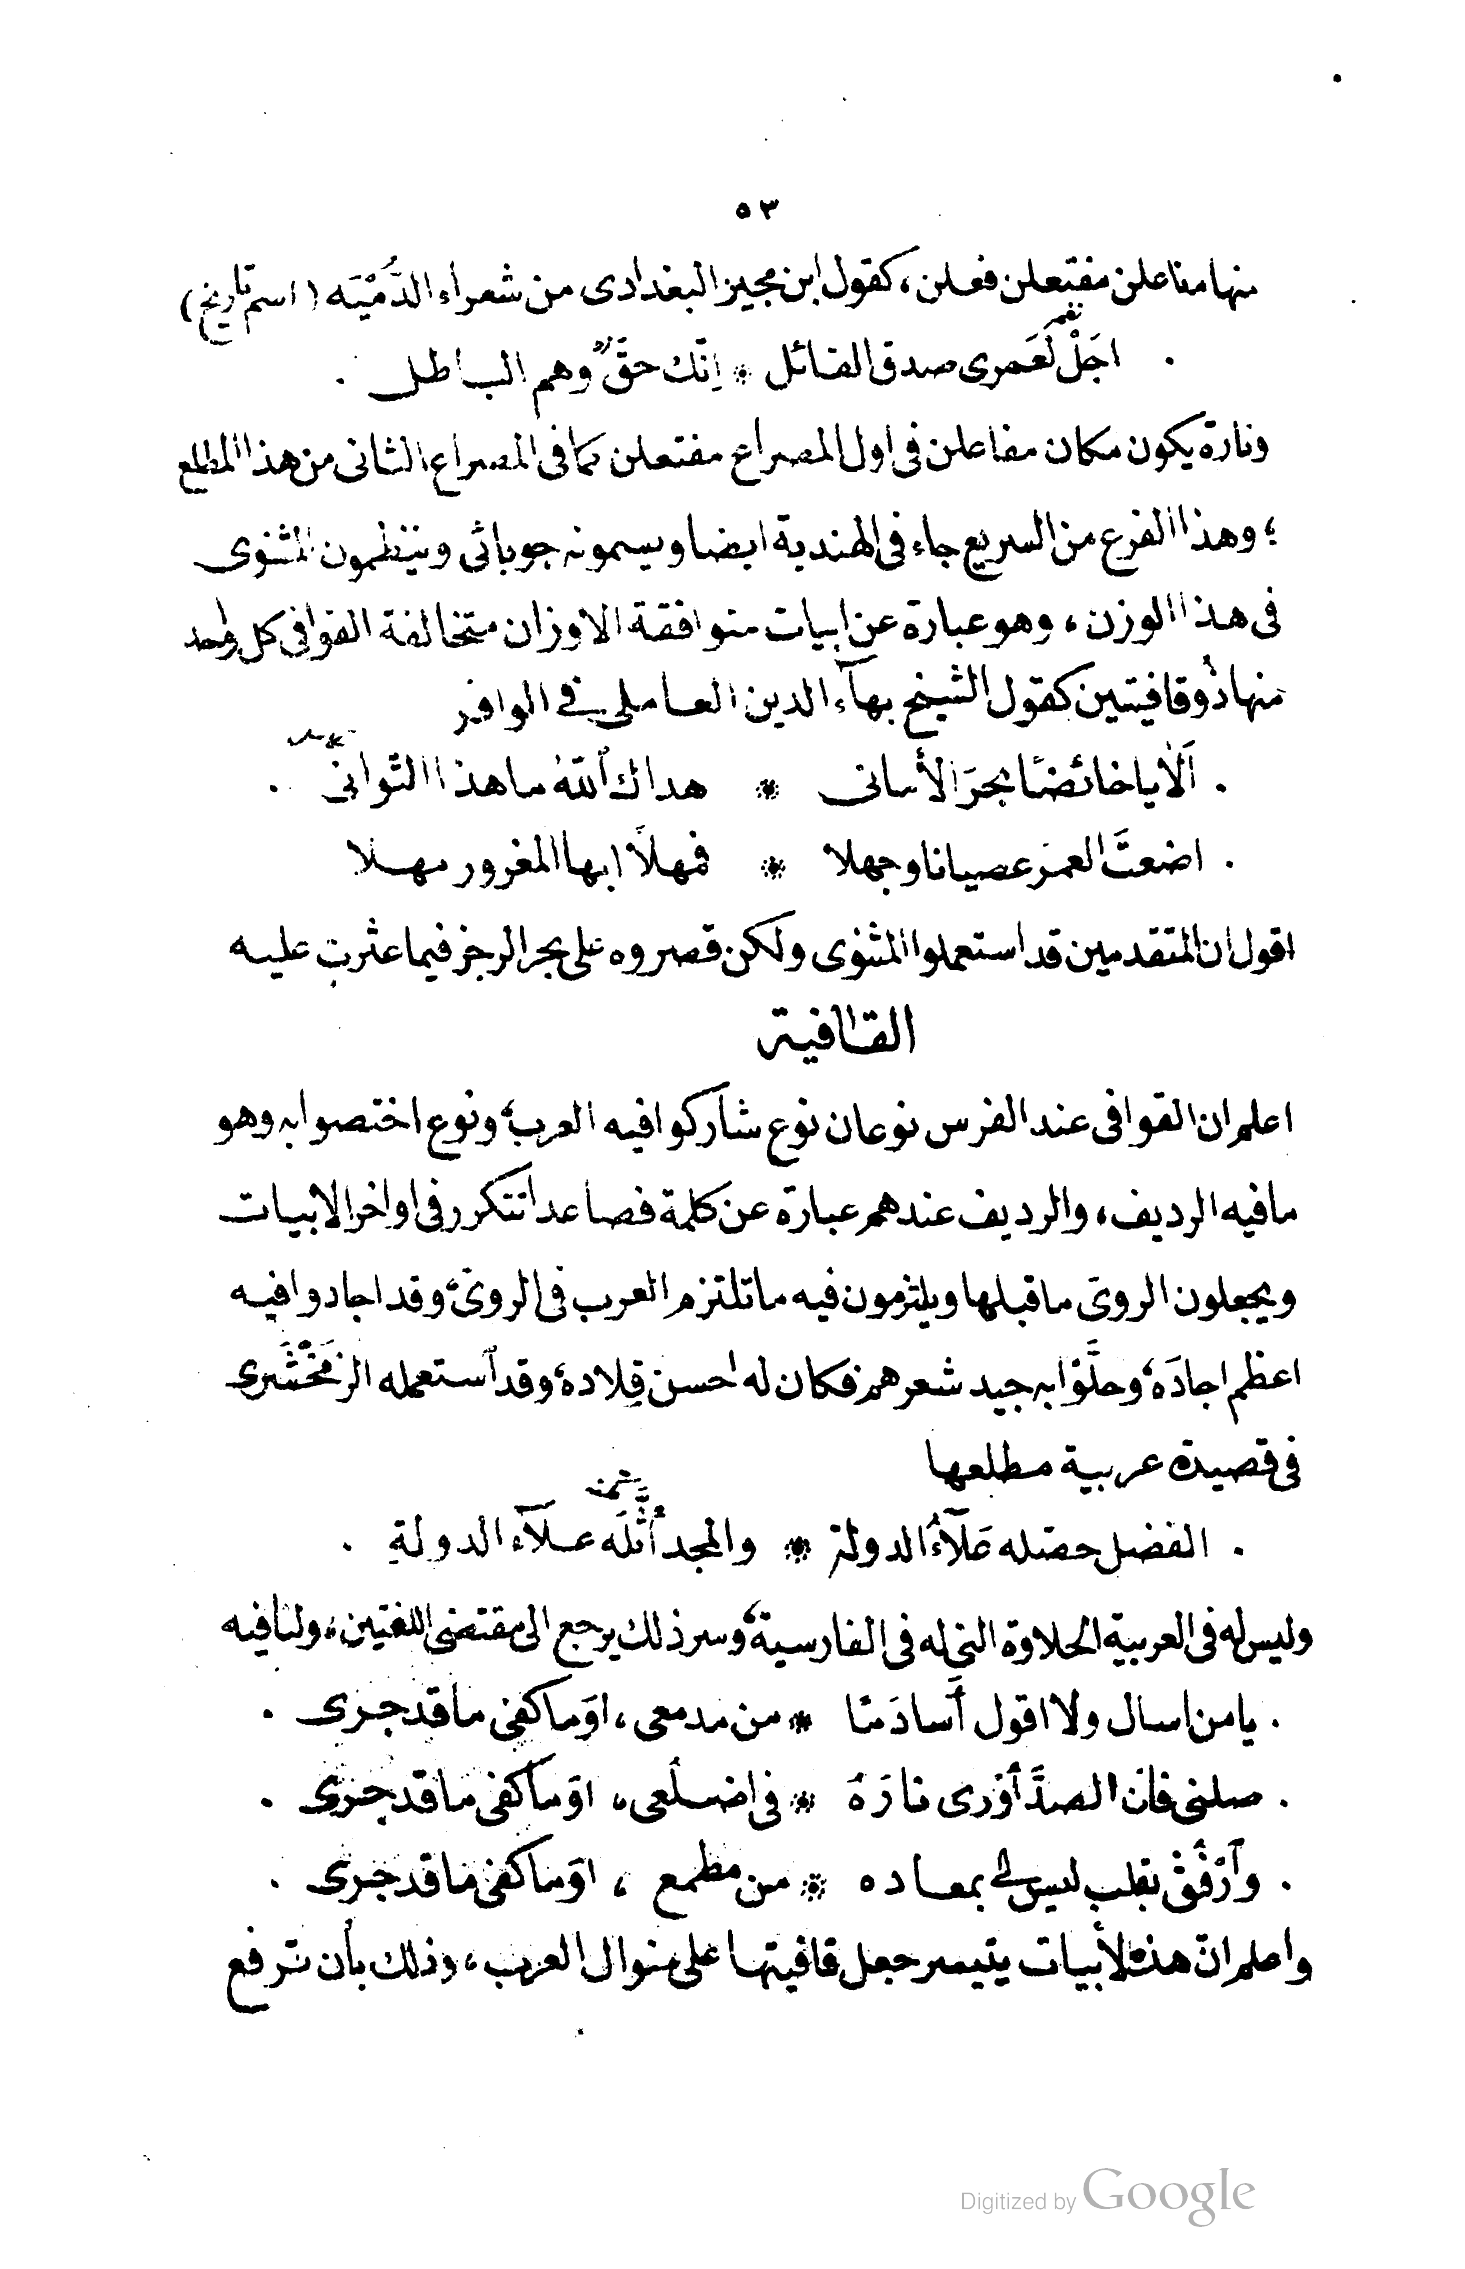 ٥٣
منها مفاعلن مفتعلن فعلن، كقول ابن مجيز البغدادى من شعراء الدُمْيَته (اسم تاريخ)
نعم
. اجَلْ لَعَمرى صدق القائل * اِنّك حقَّ وهم الباطل .
وتارة يكون مكان مفاعلن فى اول المصراع مفتعلن كما فى المصراع الثانى من هذا المطلع
؛ وهذا الفرع من السريع جاء فى الهندية ايضا ويسمونه جوبائى وينظمون المثنوى
فى هذا الوزن، وهو عبارة عن ابيات متوافقة الاوزان متخالفة القوافى كل واحد
منها ذُو قافيتين كقول الشيخ بهآء الدين العاملى فى الوافر
. اَلاَ يا خائضًا بحرَ الأمانى * هداك ٱللهُ ما هذا التوانى .
. اضعتَ العمرَ عصيانا وجهلا * فمهلاً ايها المغرور مهلا
اقول ان المتقدمين قد استعملوا المثنوى ولكن قصروه على بحر الرجز فيما عثرت عليه
القافية
اعلم ان القوافى عند الفرس نوعان نوع شاركوا فيه العرب؛ ونوع اختصوا به وهو
ما فيه الرديف، والرديف عندهم عبارة عن كلمة فصاعدا تتكرر فى اواخر الابيات
ويجعلون الروىّ ما قبلها ويلتزمون فيه ما تلتزم العرب فى الروىّ؛ وقد اجادوا فيه
اعظم اجادَه؛ وحلَّوا به جيد شعرهم فكان له احسن قِلاده؛ وقد ٱستعمله الزَمَخْشَرى
فى قصيدة عربية مطلعها
. الفضل حصّله عَلآءُ الدولة * والمجد أثَّلَه علآء الدولةِ .
وليس له فى العربية الحلاوة التى له فى الفارسية؛ وسر ذلك يرجع الى مقتضى اللغتين؛ ولنا فيه
. يا من اسال ولا اقول أَسا دَمًا * من مدمعى، اوَما كفى ما قد جرى .
. صلنى فان الصدَّ أوْرى نارَهُ * فى اضلُعى، اوَما كفى ما قد جرى .
. وٱرْفُقْ بقلب ليس لى بمعاده * من مطمع، اوَما كفى ما قد جرى .
واعلم انّ هذه الأبيات يتيسر جعل قافيتها على منوال العرب، وذلك بأن ترفع
Digitized by Google